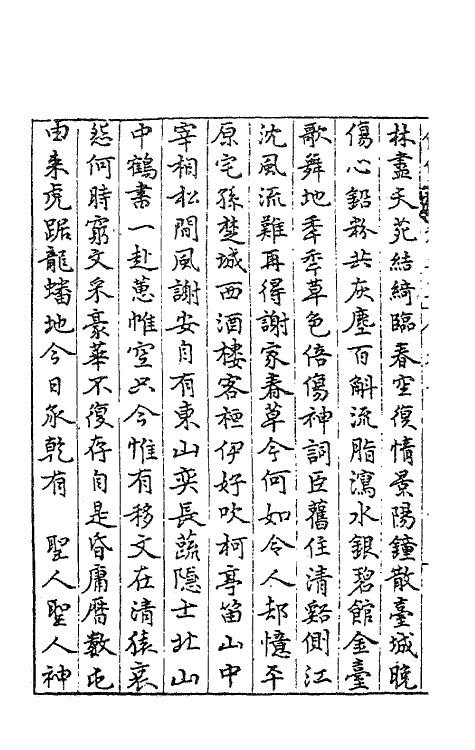 林盡天苑結綺臨春空復情景陽鐘散臺城晚
傷心鉛粉共灰塵百斛流脂瀉水銀碧館金臺
歌舞地年年草色倍傷神詞臣舊住清谿側江
沈風流難再得謝家春草今何如令人却憶平
原宅孫楚城西酒樓客桓伊好吹柯亭笛山中
宰相松間風謝安自有東山奕長蔬隱士北山
中鶴書一赴蕙帷空只今惟有移文在清猿哀
怨何時窮文采豪華不復存自是昏庸曆數屯
由来虎踞龍蟠地今日承乾有 聖人聖人神